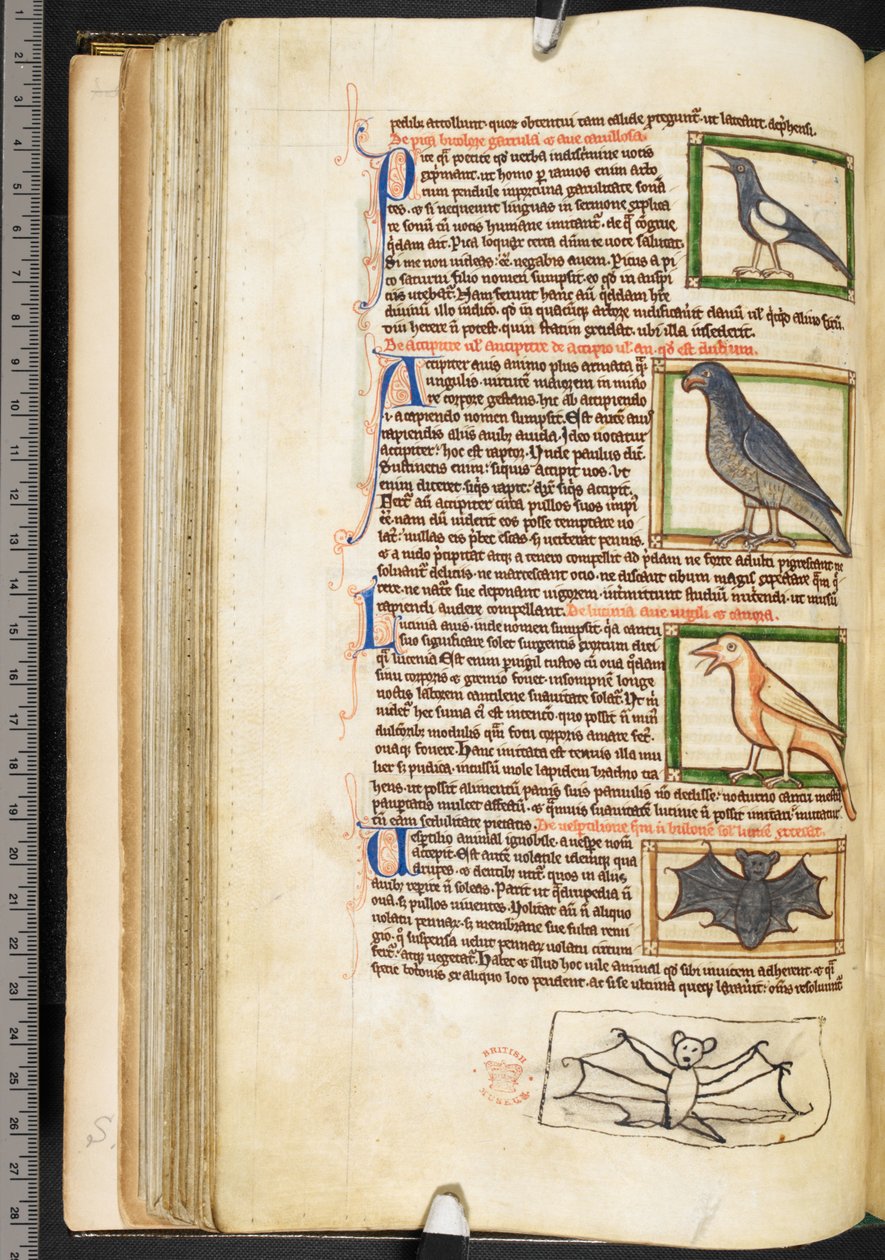 pedib; attollunt· quor obtentui tam calide ꝓtegunt᷑· ut lateant dep̄hensi.
De pica bicolore garrula ⁊ aue cauillosa.
Pice q̄i poetice qd̓ uerba indiscrimine uocis
exp̄mant· ut homo ꝑ ramos enim arbo
rum pendule inportuna garrulitate sonā
tes· ⁊ si nequeunt linguas in sermone explica
re sonū tn̄ uocis humane imitant᷑· de q̄ ɔgrue
q̄dam ait· Pica loquax certa dn̄m te uoce salutat·
Si me non uideas: ēē negabis auem· Picus a pi
co saturni filio nomen sumpsit· eo qd̓ in auspi
ciis utebat᷑· Nam ferunt hanc auē q̄ddam h̄re
diuinū illo indicio· qd̓ in quacūq; arbore nidificauit clauū ul̓ q̄cqd̓ aliud fixū·
diu herere ñ potest· quin statim excidat· ubi illa insederit.
De accipitre ul̓ ancipitre de accipio ul̓ an· qd̓ est dubium.
Accipiter auis animo plus armata q̄
ungulis· uirtutē maiorem in mino
re corpore gestans· hic ab accipiendo
·i· a capiendo nomen sumpsit· Est autē auis
rapiendis aliis auib; auida· Ideo uocatur
accipiter· hoc est raptor· Vnde paulus dic̄·
Sustinetis enim: siquis accipit uos· Vt
enim diceret siq̄s rapit: dix̄ siq̄s accipit·
Fert᷑ aū accipiter circa pullos suos impi᷒
ēē· nam dū uiderit eos posse temptare uo
lat᷒: nullas eis p̄bet escas· s; uerberat pennis·
⁊ a nido p̄cipitat atq; a tenero compellit ad p̄dam ne forte adulti pigrescant· ne
soluant᷑ deliciis· ne marcescant ocio· ne discant cibum magis expectare q̄m q̄
rere· ne nat᷒e sue deponant uigorem· intmittunt studiū nutriendi· ut in usū
rapiendi audere compellant· De lucinia aue uigili ⁊ canora.
Lucinia auis· inde nomen sumpsit· q̄a cantu
suo significare solet surgentis exortum diei
q̄i lucenia Est enim ꝑuigil custos cū oua q̄dam
sinu corporis ⁊ gremio fouet· insompnē longe
noctis laborem cantilene suauitate solat᷑· Vt m̄
uidet᷑ hec suma ei᷒ est intencō· quo possit ñ min᷒
dulcorib; modulis q̄m fotu corporis animare fet᷒·
ouaq; fouere· Hanc imitata est tenuis illa mu
lier s; pudica· incussū mole lapidem brachio tra
hens· ut possit alimentū panis suis paruulis ñ deesse· nocturno cantu mestū
paupertatis mulcet affectū· ⁊ q̄muis suauitatē lucinie ñ possit imitari· imitatur
tn̄ eam sedulitate pietatis· De uesꝑtilione
Vesꝑtilio animal ignobile· a uesꝑe nom̄
accepit· Est autē uolatile idemq; qua
drupes· ⁊ dentib; utit᷑· quos in aliis
auib; reꝑire ñ soleas· Parit ut q̄drupedia ñ
oua· s; pullos uiuentes· Volitat aū ñ aliquo
uolatu pennar· s; membrane sue fulta remi
gio· q̄ suspensa uelut pennar uolatu circum
fert᷑· atq; uegetat᷑· Habet ⁊ illud hoc uile animal qd̓ sibi inuicem adherent· ⁊ q̄i
specie botrionis ex aliquo loco pendent· ac si se ultima queq; laxau̓it: om̄s resoluunt᷑
BRITISH
MUSEUM